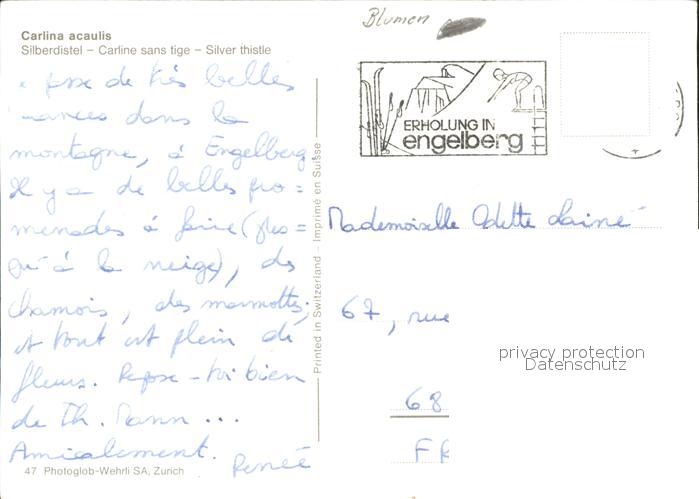 Blumen
Carlina acaulis
Silberdistel – Carline sans tige – Silver thistle
ERHOLUNG IN
engelberg
passe de très belles
vacances dans la
montagne, à Engelberg.
Il y a de belles pro=
menades à faire (jus=
qu'à la neige), des
chamois, des marmottes;
et tout est plein de
fleurs. Repose-toi bien
de Th. Mann ...
Amicalement.
Renée
47 Photoglob-Wehrli SA, Zurich
Printed in Switzerland – Imprimé en Suisse
Mademoiselle Odette Lainé
67, rue
privacy protection
Datenschutz
68
FR